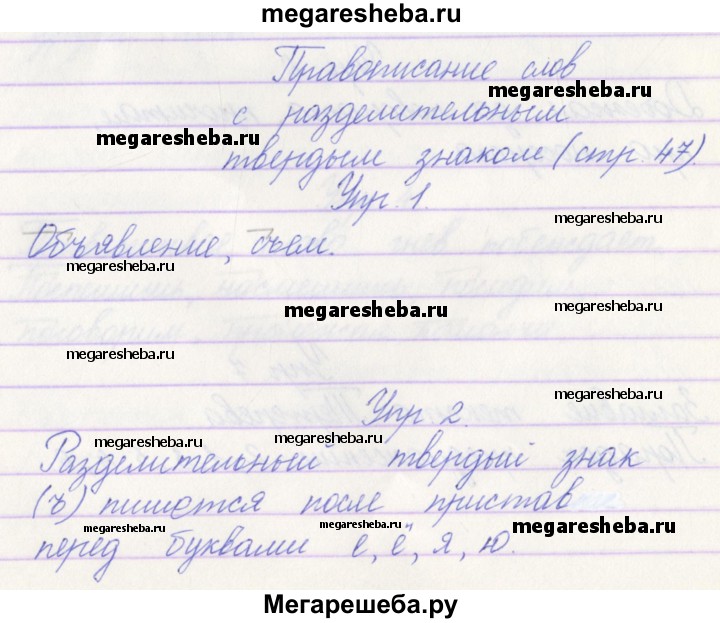 megaresheba.ru
Правописание слов
megaresheba.ru
с разделительным
megaresheba.ru
твердым знаком (стр. 47).
Упр. 1.
megaresheba.ru
Объявление, съем.
megaresheba.ru
megaresheba.ru
megaresheba.ru
megaresheba.ru
megaresheba.ru
Упр. 2.
megaresheba.ru
megaresheba.ru
Разделительный твердый знак
(ъ) пишется после пристав
megaresheba.ru
megaresheba.ru
megaresheba.ru
перед буквами е, ё, я, ю.
Мегарешеба.ру